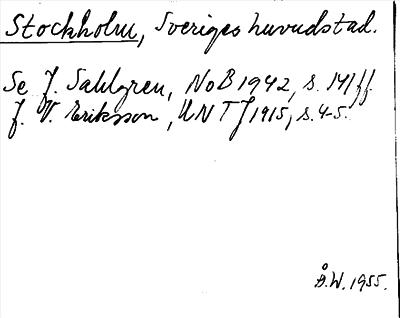 Stockholm, Sveriges huvudstad.
Se J. Sahlgren, NoB 1942, s. 141 ff.
J. V. Eriksson, UNTJ 1915, s. 4-5.
Å.W. 1955.